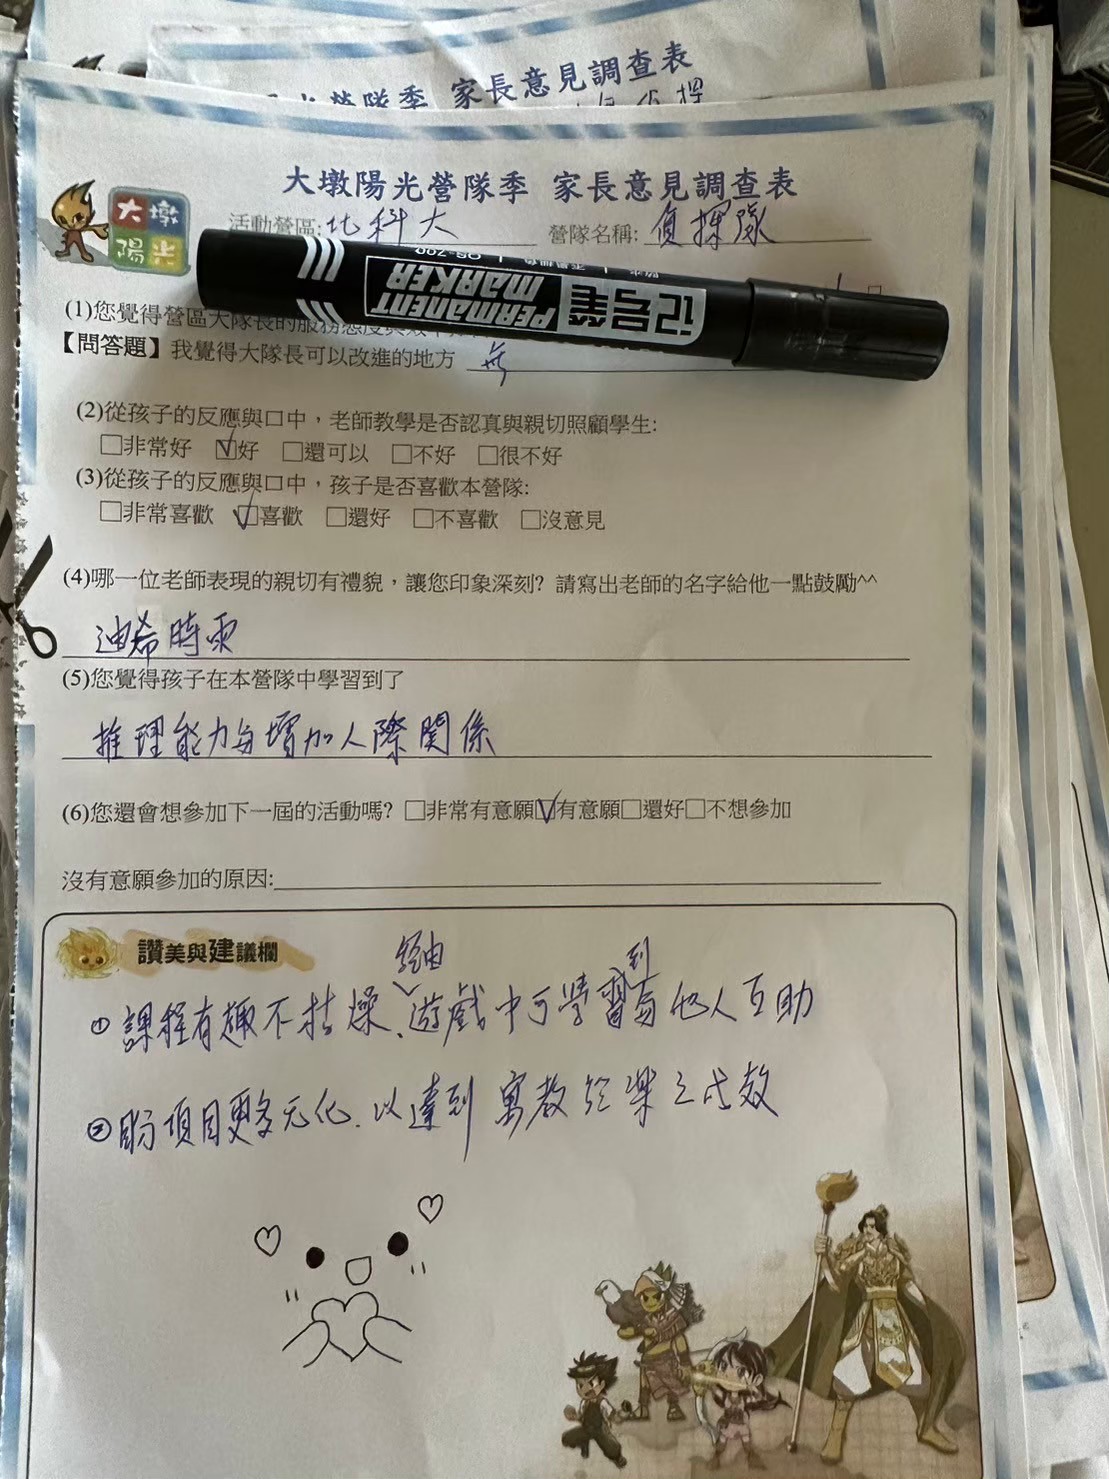 家長意見調查表
大墩陽光營隊季 家長意見調查表
大墩
陽光
活動營區:北科大 營隊名稱:偵探隊
記号筆
PERMANENT
MARKER
(1)您覺得營區大隊長的服務態度與效
【問答題】我覺得大隊長可以改進的地方 無
(2)從孩子的反應與口中,老師教學是否認真與親切照顧學生:
□非常好 ☑好 □還可以 □不好 □很不好
(3)從孩子的反應與口中,孩子是否喜歡本營隊:
□非常喜歡 ☑喜歡 □還好 □不喜歡 □沒意見
(4)哪一位老師表現的親切有禮貌,讓您印象深刻? 請寫出老師的名字給他一點鼓勵^^
迪希時雨
(5)您覺得孩子在本營隊中學習到了
推理能力與增加人際関係
(6)您還會想參加下一屆的活動嗎? □非常有意願☑有意願□還好□不想參加
沒有意願參加的原因:
讚美與建議欄
①課程有趣不枯燥、經由遊戲中可學習到與他人互助
②盼項目更多元化.以達到寓教於樂之成效